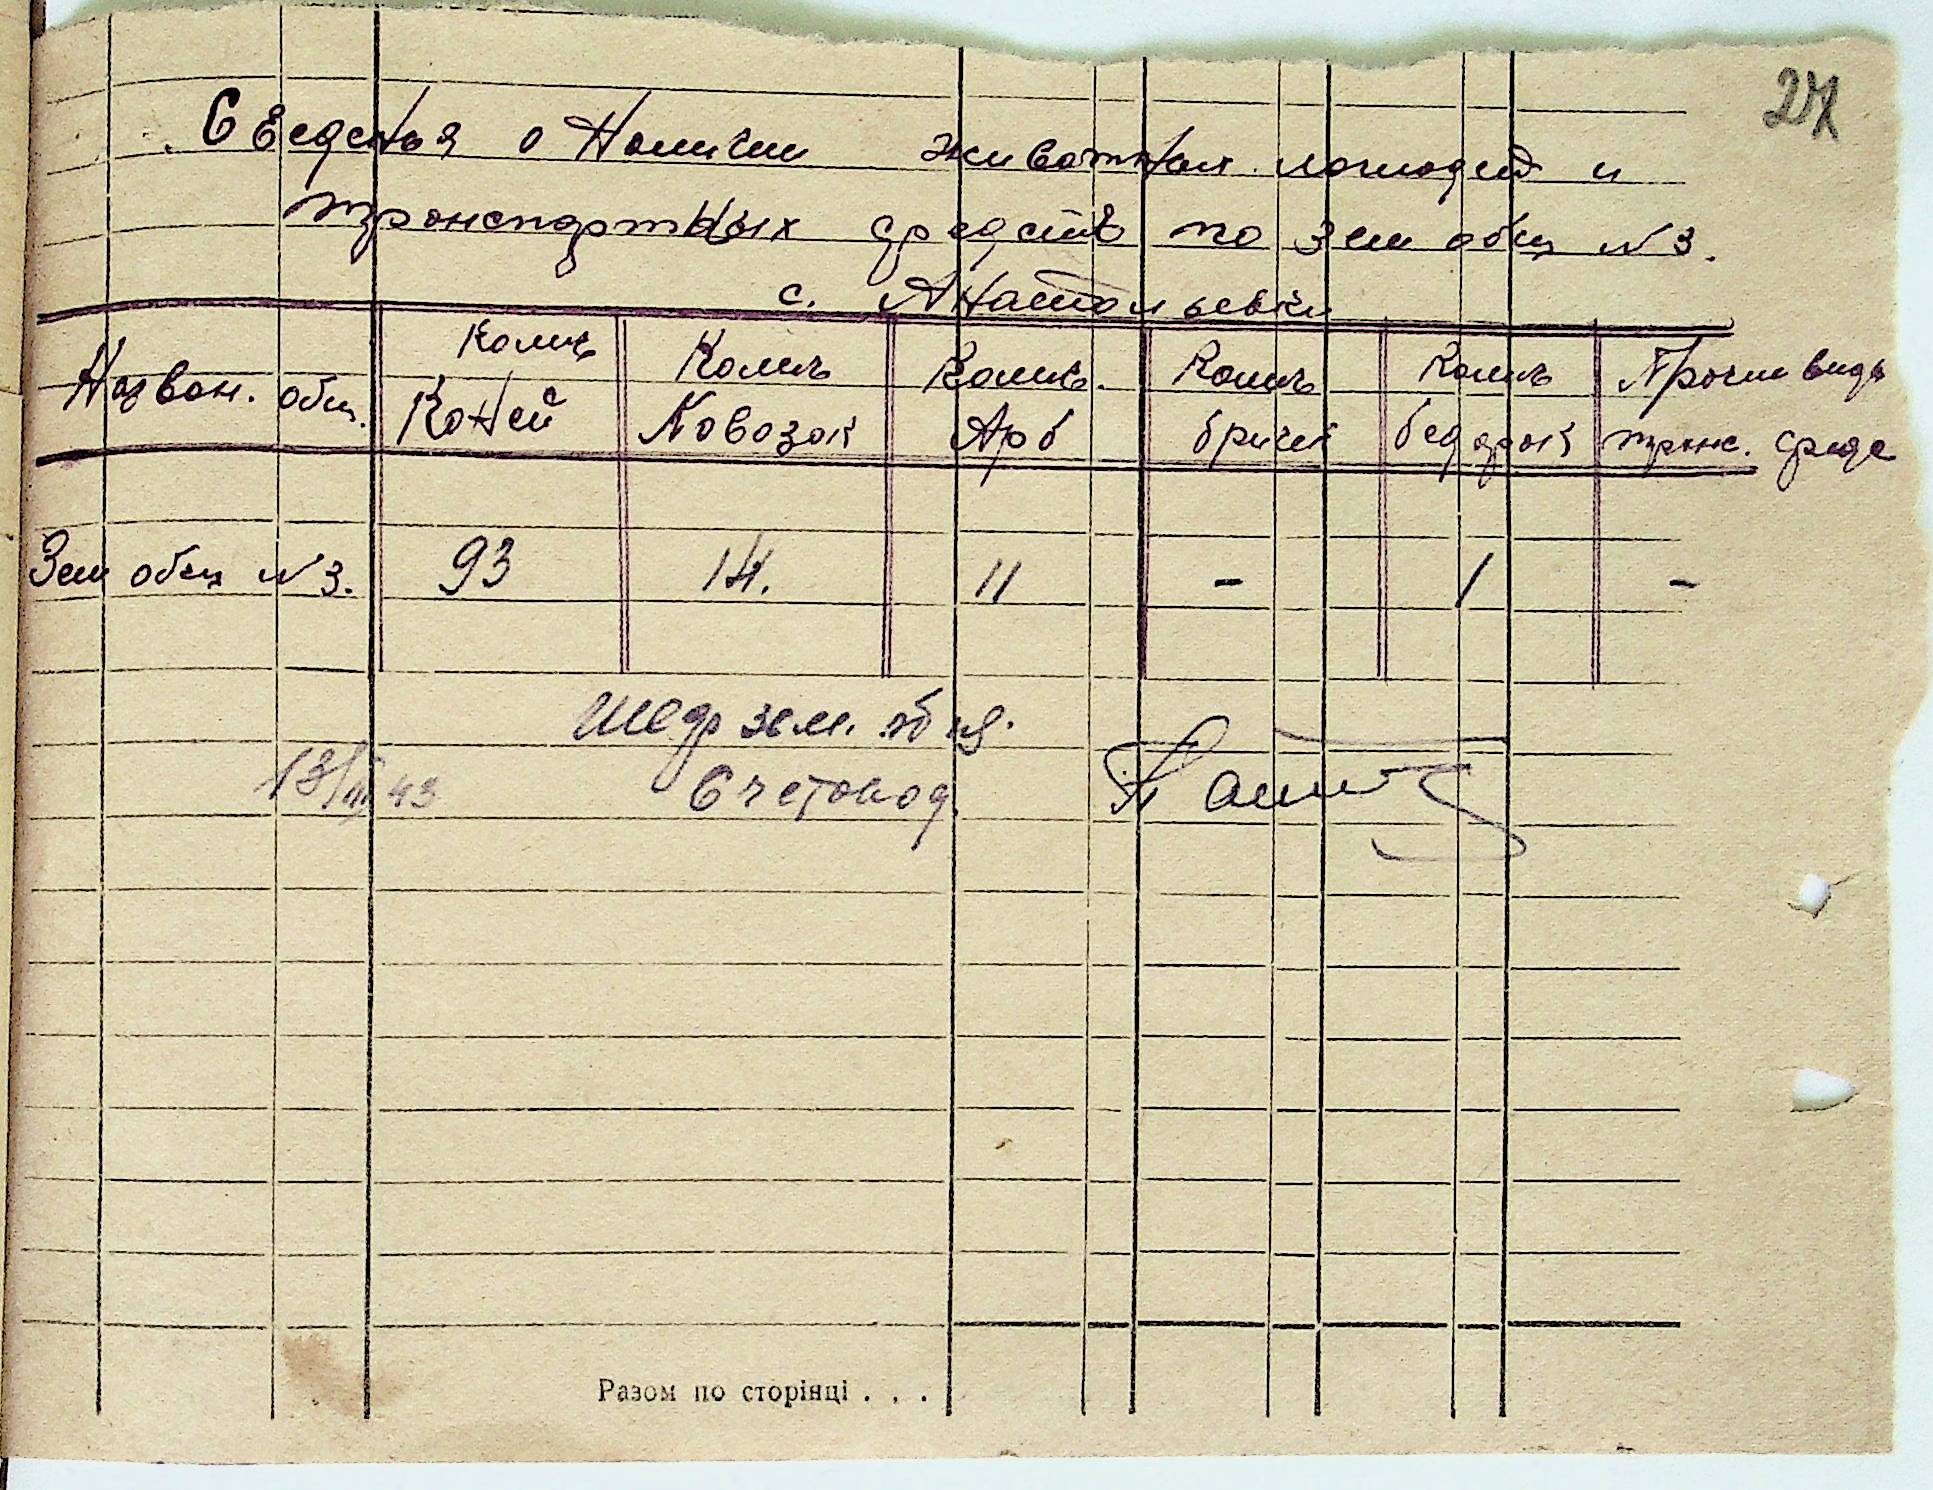 27
Сведенья о Наличии животных лошадей и
транспортных средств по зем общ №3.
с. Анатольевки
Назван. общ. Колич Коней Колич Повозок Колич. Арб Колич бричек Колич бедарок Прочи виды транс. средс
Зем общ №3. 93 14. 11 - 1 -
зем. общ.
13/III 43 Счетовод
Разом по сторінці . . .